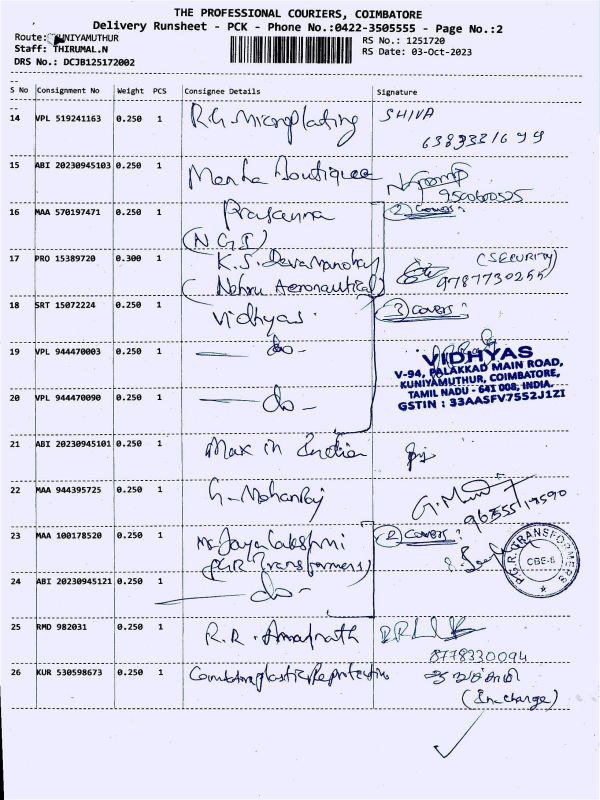 THE PROFESSIONAL COURIERS, COIMBATORE
Delivery Runsheet - PCK - Phone No.:0422-3505555 - Page No.:2
Route: KUNIYAMUTHUR
RS No.: 1251720
Staff: THIRUMAL.N
RS Date: 03-Oct-2023
DRS No.: DCJB125172002
S No Consignment No Weight PCS Consignee Details Signature
14 VPL 519241163 0.250 1 R.G. Microplating SHIVA
15 ABI 20230945103 0.250 1 Boutique
9500600525
16 MAA 570197471 0.250 1 Prasanna (2) covers:
(NGI)
17 PRO 15389720 0.300 1 K.S. Devamanohar (SECURITY)
(Nehru Aeronautical) 9787730255
18 SRT 15072224 0.250 1 Vidhyas. (3) covers:
19 VPL 944470003 0.250 1 — do —
VIDHYAS
V-94, PALAKKAD MAIN ROAD,
KUNIYAMUTHUR, COIMBATORE,
TAMIL NADU - 641 008, INDIA.
GSTIN : 33AASFV7552J1ZI
20 VPL 944470090 0.250 1 — do —
21 ABI 20230945101 0.250 1 Max in India
22 MAA 944395725 0.250 1 G. Mohanraj
23 MAA 100178520 0.250 1 Mr Jayalakshmi (2) covers:
(PGR Transformers)
P.G.R. TRANSFORMERS
CBE-8
24 ABI 20230945121 0.250 1 — do —
25 RMD 982031 0.250 1 R.R. Amarnath
8778330094
26 KUR 530598673 0.250 1
(Incharge)